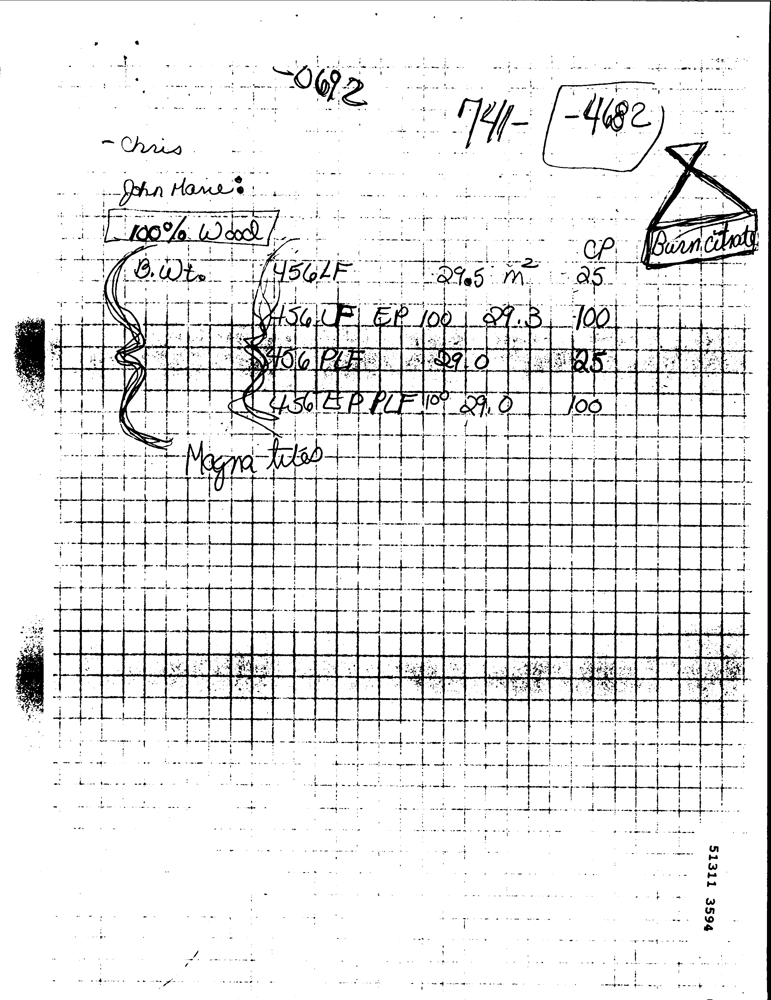 -0692
741- -4682
- Chris
John Mane:
100% Wood
Burn citrate
CP
B. Wt. 456 LF 29.5 m² 25
456 LF EP 100 29.3 100
456 PLF 29.0 25
456 EP PLF 100 29.0 100
Magna tites
51311 3594